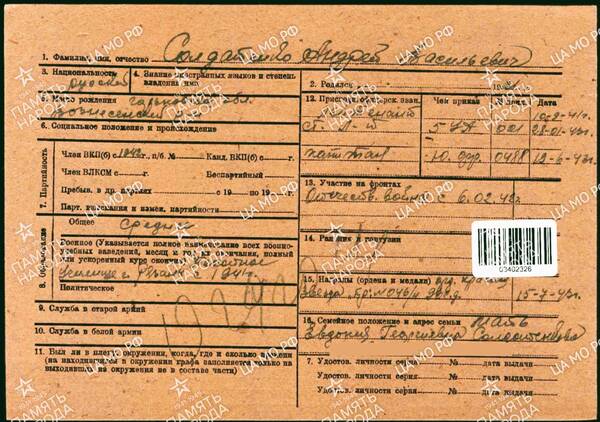 1. Фамилия, имя, отчество Солдатенко Андрей Васильевич
3. Национальность русский
4. Знание иностранных языков и степень владения ими
2. Родился 19 г.
5. Место рождения Горьковская обл.
Вознесенский
6. Социальное положение и происхождение
7. Партийность
Член ВКП(б) с 1942 г., п/б. № Канд. ВКП(б) с г.
Член ВЛКСМ с г. Беспартийный
Пребыв. в др. партиях с 19 по 19 г.
Парт. взыскания и измен. партийности
8. Образование
Общее Среднее
Военное (Указывается полное наименование всех военно-
учебных заведений, месяц и год их окончания, полный
или ускоренный курс окончил) Пехотное
училище г. Рязань с 1941 г.
Политическое
9. Служба в старой армии
10. Служба в белой армии
11. Был ли в плену, окружении, когда, где и сколько времени
(на находившихся в окружении графа заполняется только на
выходивших из окружения не в составе части)
12. Присвоен. воен. зван. Чем приказ № приказа Дата
Лейтенант
ст. л-т 5 УА 021 28-01-43г.
капитан 10. гвр. 0488 12-6-43г.
13. Участие на фронтах
Отечеств. война с 6.02.42г.
03402326
14. Ранения и контузии
15. Награды (ордена и медали) орд. Красн.
Звезда Пр. № 046/н 15-7-43г.
16. Семейное положение и адрес семьи мать
Евдокия Георгиевна Солдатенкова
7. Удостов. личности серия № дата выдачи
Удостов. личности серия № дата выдачи
Удостов. личности серия № дата выдачи
ПАМЯТЬ НАРОДА
ЦА МО РФ